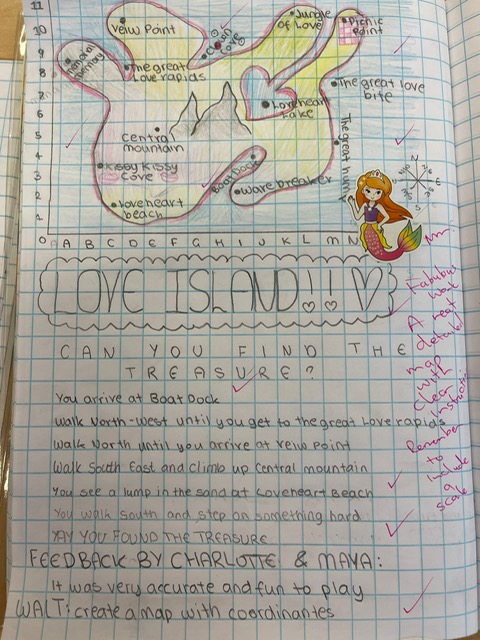 11
10
9
8
7
6
5
4
3
2
1
0
A B C D E F G H I J K L M N
Veiw Point
Clown
Cove
Jungle
of Love
Picnic
Point
The great
Love rapids
The great love
bite
Loveheart
Lake
Central
mountain
The great hump
Kissy Kissy
Cove
Boat Dock
Wave breaker
Loveheart
beach
N
LOVE ISLAND!!
CAN YOU FIND THE
TREASURE?
You arrive at Boat Dock
Walk North-West until you get to the great Love rapids
Walk North until you arrive at Veiw Point
Walk South East and climb up Central mountain
You see a lump in the sand at Loveheart Beach
You walk South and step on something hard
YAY YOU FOUND THE TREASURE
FEEDBACK BY CHARLOTTE & MAYA:
It was very accurate and fun to play
WALT: create a map with coordinantes
Fabulous
work
A great
detailed
map
with
clear
instructions
Remember
to
include
a
scale